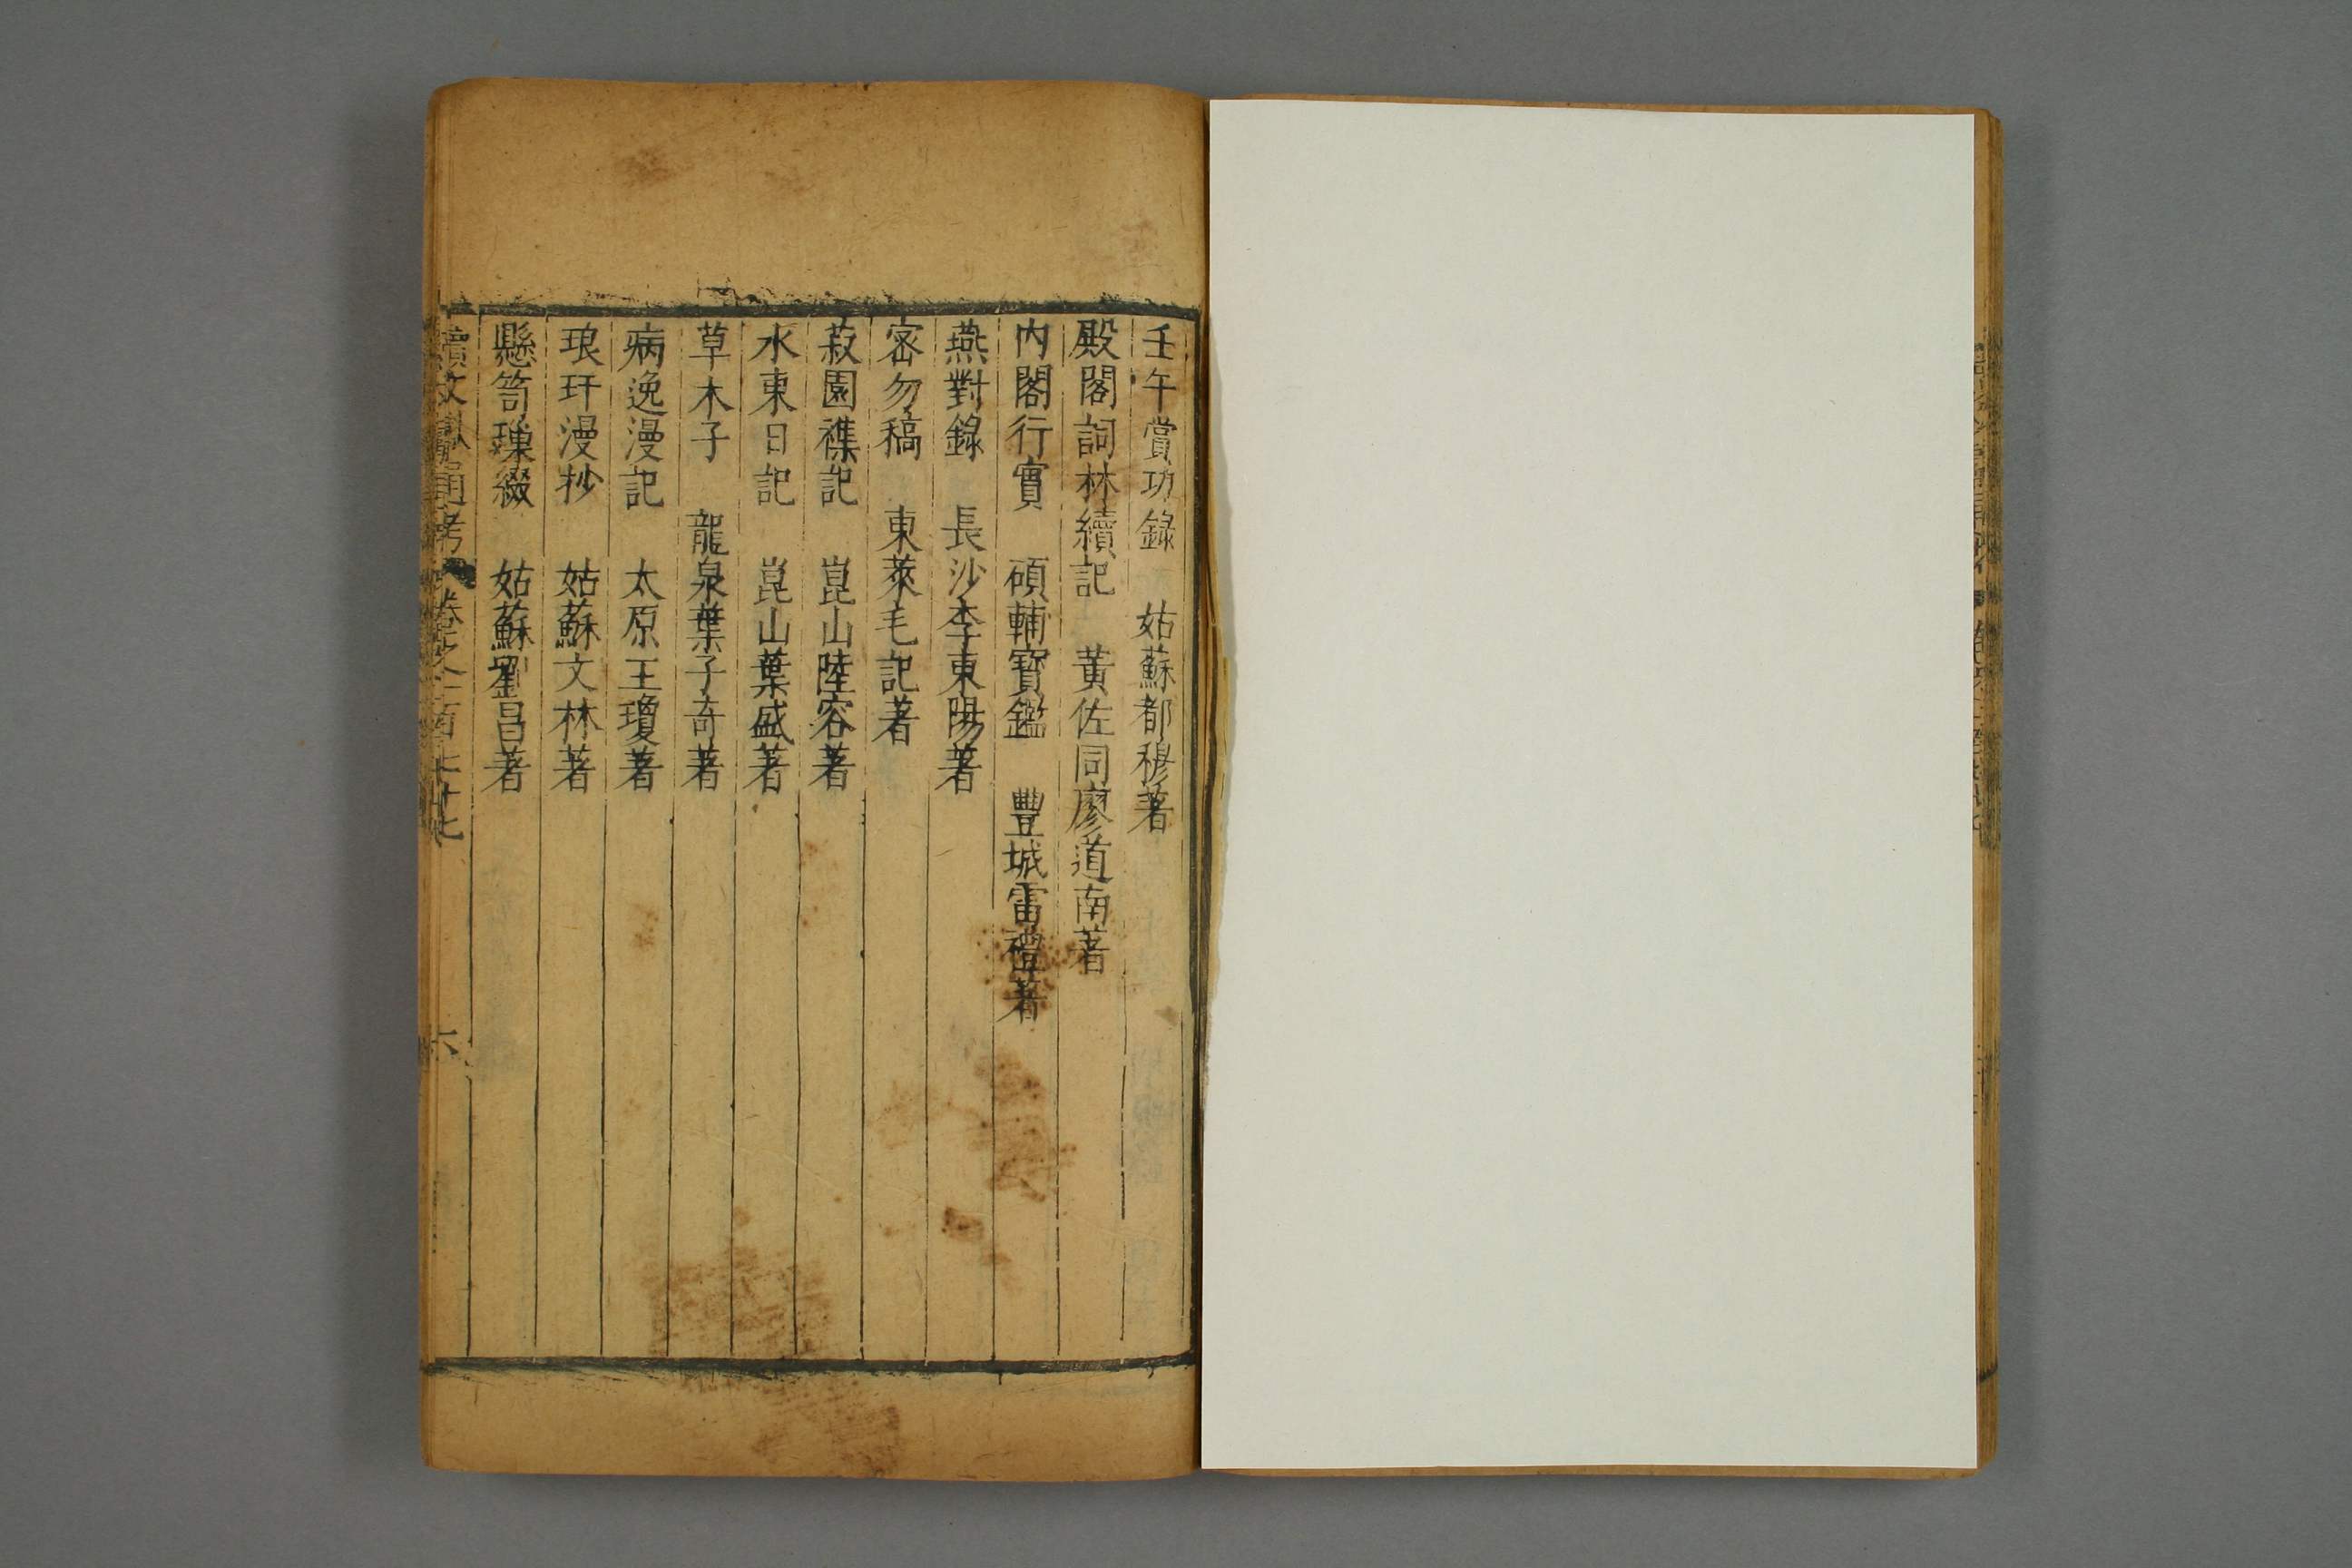 壬午賞功錄　姑蘇都穆著
殿閣詞林續記　黃佐同廖道南著
內閣行實　碩輔寶鑑　豐城雷禮著
燕對錄　長沙李東陽著
密勿稿　東萊毛記著
菽園襍記　崑山陸容著
水東日記　崑山葉盛著
草木子　龍泉葉子奇著
病逸漫記　太原王瓊著
琅玕漫抄　姑蘇文林著
懸笥瑣綴　姑蘇劉昌著
續文獻通考　卷之一百七十七　六